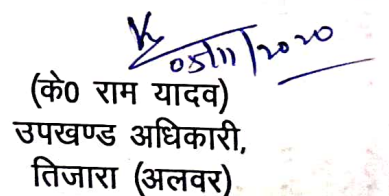 05/11/2020
(के0 राम यादव)
उपखण्ड अधिकारी,
तिजारा (अलवर)